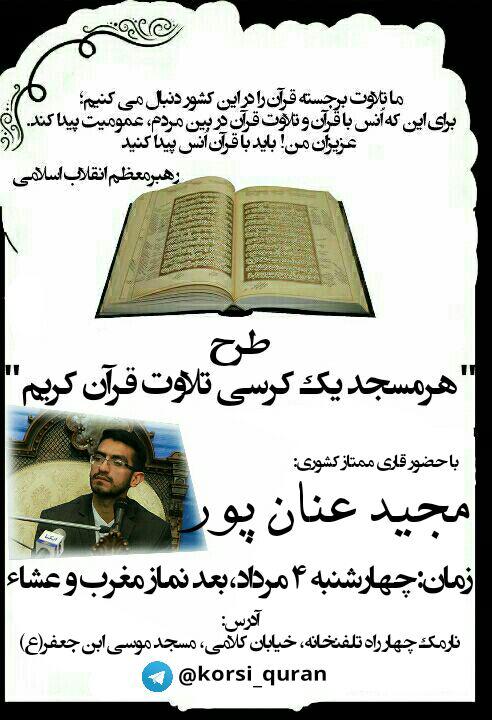 ما تلاوت برجسته قرآن را در این کشور دنبال می کنیم؛
برای این که اُنس با قرآن و تلاوت قرآن در بین مردم، عمومیت پیدا کند.
عزیزان من! باید با قرآن اُنس پیدا کنید
رهبر معظم انقلاب اسلامی
طرح
"هر مسجد یک کرسی تلاوت قرآن کریم"
با حضور قاری ممتاز کشوری:
مجید عنان پور
زمان: چهارشنبه ۴ مرداد، بعد نماز مغرب و عشاء
آدرس:
نارمک چهار راه تلفنخانه، خیابان کلامی، مسجد موسی ابن جعفر(ع)
@korsi_quran